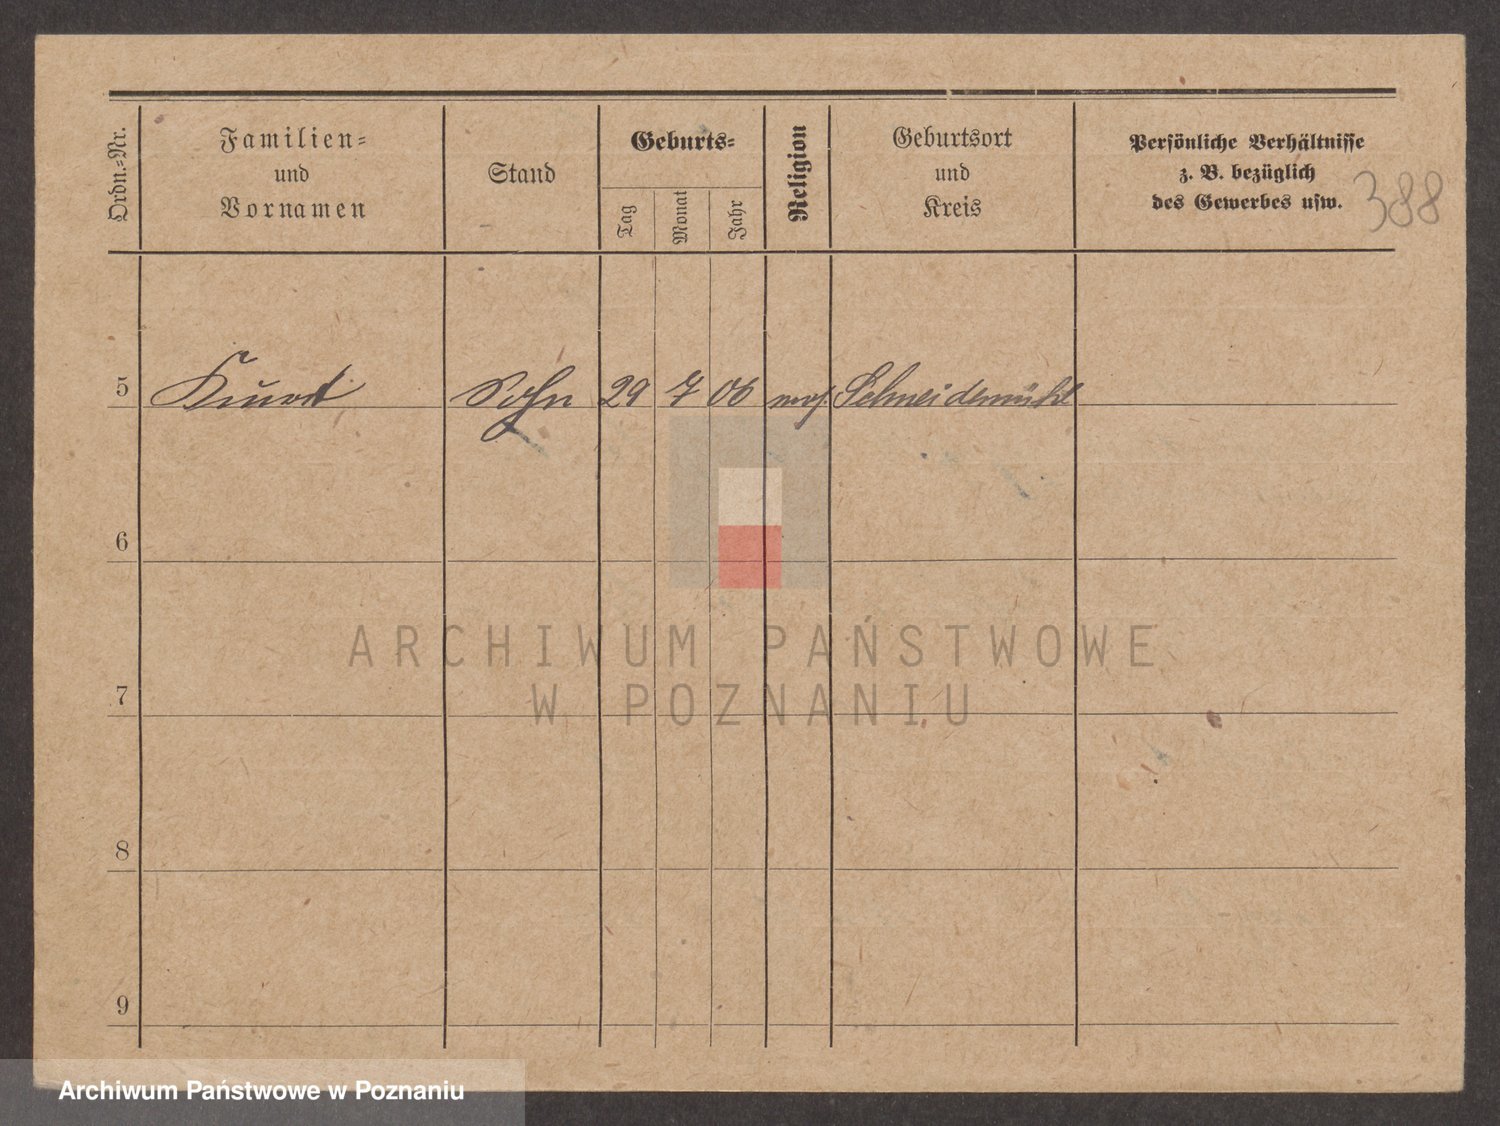 Ordn.-Nr.
Familien-
und
Vornamen
Stand
Geburts-
Tag
Monat
Jahr
Religion
Geburtsort
und
Kreis
Persönliche Verhältnisse
z. B. bezüglich
des Gewerbes usw.
388
5 Kurt Sohn 29 7 06 mos. Schneidemühl
6
7
8
9
ARCHIWUM PAŃSTWOWE
W POZNANIU
Archiwum Państwowe w Poznaniu